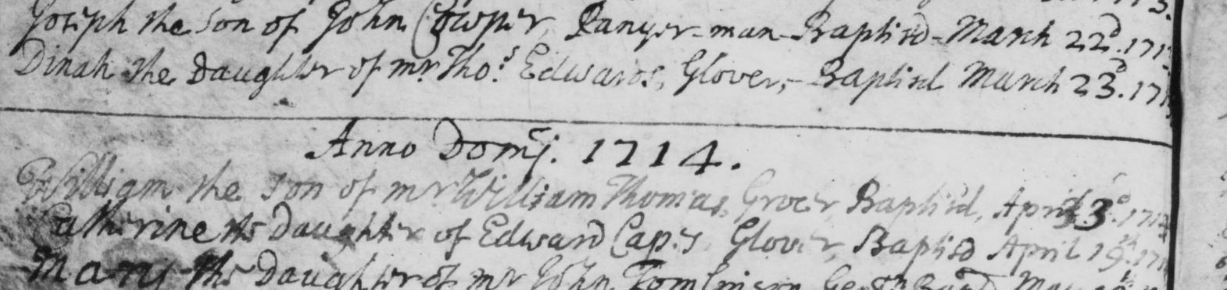 Joseph the Son of John Cowper, Panyer-man Baptisd March 22d. 171
Dinah the Daughter of mr Thos: Edwards, Glover, Baptisd March 23d. 171
Anno Domj. 1714.
William the Son of mr William Thomas, Grocer, Baptis'd, April 3d. 1714
Catherine the Daughter of Edward Capes Glover, Baptisd April 19th. 171
Mary the Daughter of mr John Tomlinson